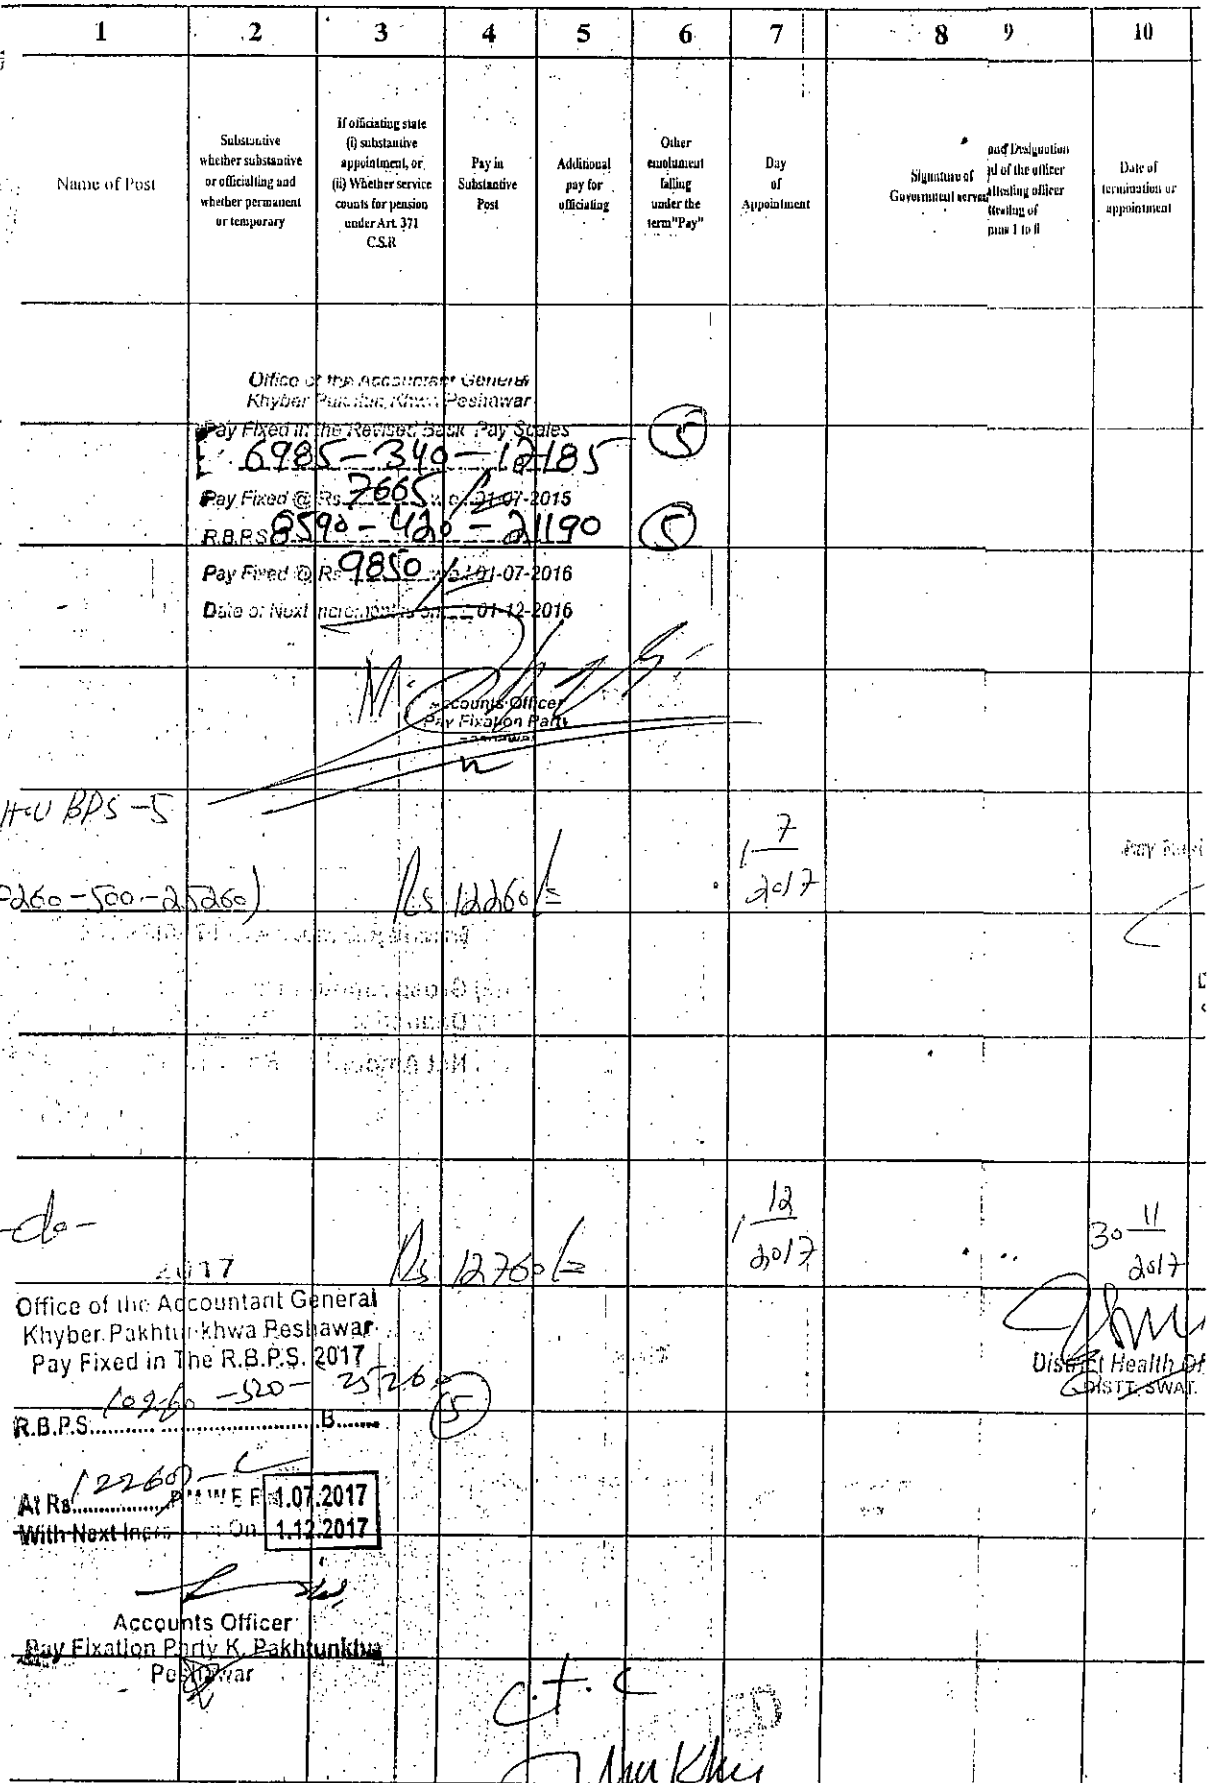 1 2 3 4 5 6 7 8 9 10
Name of Post
Substantive
whether substantive
or officialting and
whether permanent
or temporary
If officiating state
(i) substantive
appointment, or
(ii) Whether service
counts for pension
under Art. 371
C.S.R
Pay in
Substantive
Post
Additional
pay for
officiating
Other
emolument
falling
under the
term "Pay"
Day
of
Appointment
Signature of
Government
and Designation
of the officer
attesting officer
of
1 to 8
Date of
termination or
appointment
Office of the Accountant General
Khyber Peshawar
Pay Fixed in the Revised Basic Pay Scales
6985-340-17185 5
Pay Fixed @ Rs 7665/= 01-07-2015
R.B.P.S 8590-420-21190 5
Pay Fixed @ Rs 9850 01-07-2016
Date of Next increment is on 01-12-2016
Accounts Officer
Pay Fixation Party
Peshawar
BPS-5
260-500-25260)
Rs 12260/=
1 7
2017
-do-
Rs 12760/=
1 12
2017
30 11
2017
District Health Of
DISTT. SWAT.
2017
Office of the Accountant General
Khyber Pakhtunkhwa Peshawar
Pay Fixed in The R.B.P.S. 2017
10260-520-25260
R.B.P.S.......B....... 5
At Rs 12260 P.M W E F 1.07.2017
With Next Incre On 1.12.2017
Accounts Officer
Pay Fixation Party K. Pakhtunkhwa
Peshawar
C.T.C